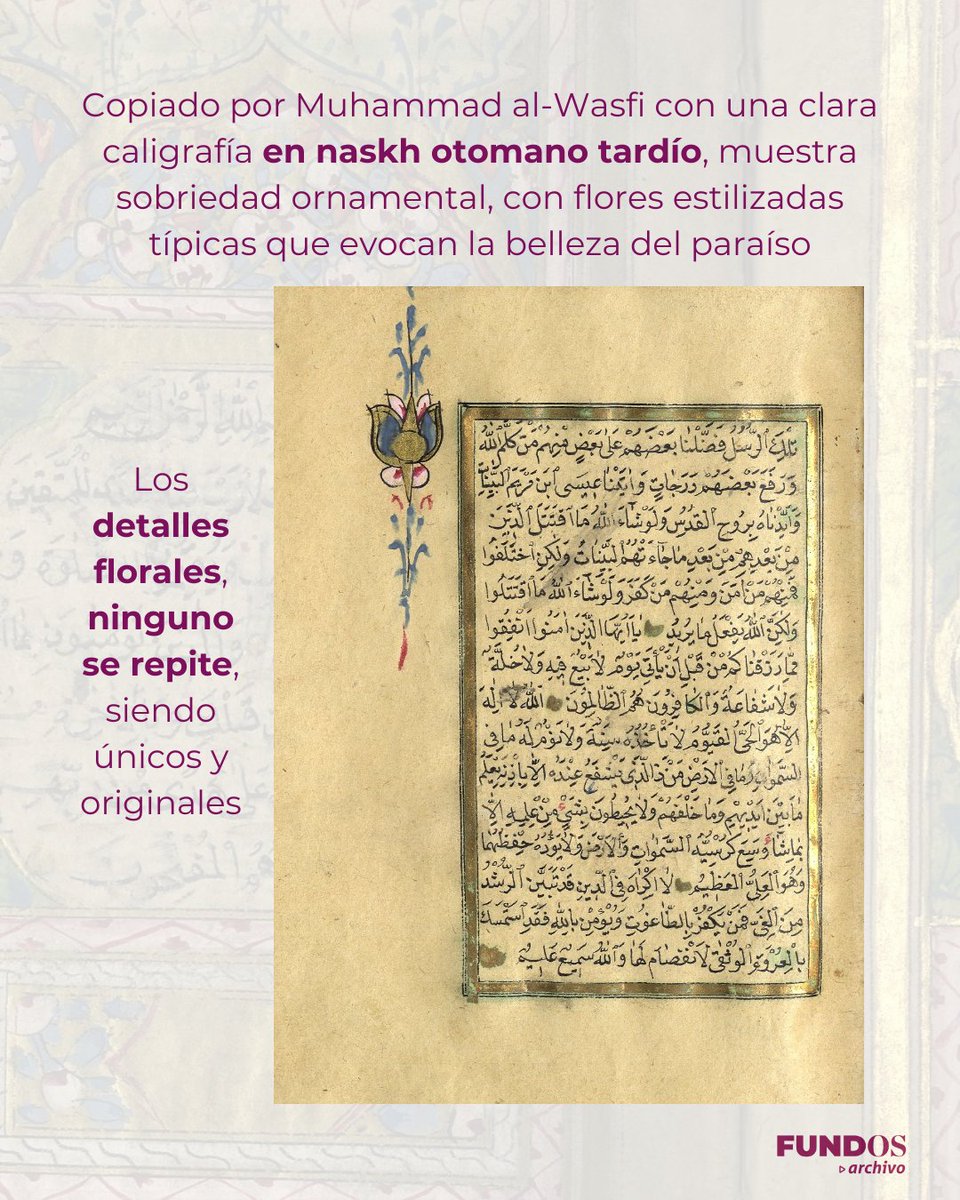 Copiado por Muhammad al-Wasfi con una clara
caligrafía en naskh otomano tardío, muestra
sobriedad ornamental, con flores estilizadas
típicas que evocan la belleza del paraíso
Los
detalles
florales,
ninguno
se repite,
siendo
únicos y
originales
تِلْكَ الرُّسُلُ فَضَّلْنَا بَعْضَهُمْ عَلَى بَعْضٍ مِنْهُمْ مَنْ كَلَّمَ اللّٰهُ
وَرَفَعَ بَعْضَهُمْ دَرَجَاتٍ وَاٰتَيْنَا عِيسَى ابْنَ مَرْيَمَ الْبَيِّنَاتِ
وَاَيَّدْنَاهُ بِرُوحِ الْقُدُسِ وَلَوْ شَاءَ اللّٰهُ مَا اقْتَتَلَ الَّذِينَ
مِنْ بَعْدِهِمْ مِنْ بَعْدِ مَا جَاءَتْهُمُ الْبَيِّنَاتُ وَلٰكِنِ اخْتَلَفُوا
فَمِنْهُمْ مَنْ اٰمَنَ وَمِنْهُمْ مَنْ كَفَرَ وَلَوْ شَاءَ اللّٰهُ مَا اقْتَتَلُوا
وَلٰكِنَّ اللّٰهَ يَفْعَلُ مَا يُرِيدُ يَا اَيُّهَا الَّذِينَ اٰمَنُوا اَنْفِقُوا
مِمَّا رَزَقْنَاكُمْ مِنْ قَبْلِ اَنْ يَأْتِيَ يَوْمٌ لَا بَيْعٌ فِيهِ وَلَا خُلَّةٌ
وَلَا شَفَاعَةٌ وَالْكَافِرُونَ هُمُ الظَّالِمُونَ اَللّٰهُ لَا اِلٰهَ
اِلَّا هُوَ الْحَيُّ الْقَيُّومُ لَا تَأْخُذُهُ سِنَةٌ وَلَا نَوْمٌ لَهُ مَا فِي
السَّمٰوَاتِ وَمَا فِي الْاَرْضِ مَنْ ذَا الَّذِي يَشْفَعُ عِنْدَهُ اِلَّا بِاِذْنِهِ يَعْلَمُ
مَا بَيْنَ اَيْدِيهِمْ وَمَا خَلْفَهُمْ وَلَا يُحِيطُونَ بِشَيْءٍ مِنْ عِلْمِهِ اِلَّا
بِمَا شَاءَ وَسِعَ كُرْسِيُّهُ السَّمٰوَاتِ وَالْاَرْضَ وَلَا يَؤُدُهُ حِفْظُهُمَا
وَهُوَ الْعَلِيُّ الْعَظِيمُ لَا اِكْرَاهَ فِي الدِّينِ قَدْ تَبَيَّنَ الرُّشْدُ
مِنَ الْغَيِّ فَمَنْ يَكْفُرْ بِالطَّاغُوتِ وَيُؤْمِنْ بِاللّٰهِ فَقَدِ اسْتَمْسَكَ
بِالْعُرْوَةِ الْوُثْقٰى لَا انْفِصَامَ لَهَا وَاللّٰهُ سَمِيعٌ عَلِيمٌ
FUNDOS
archivo